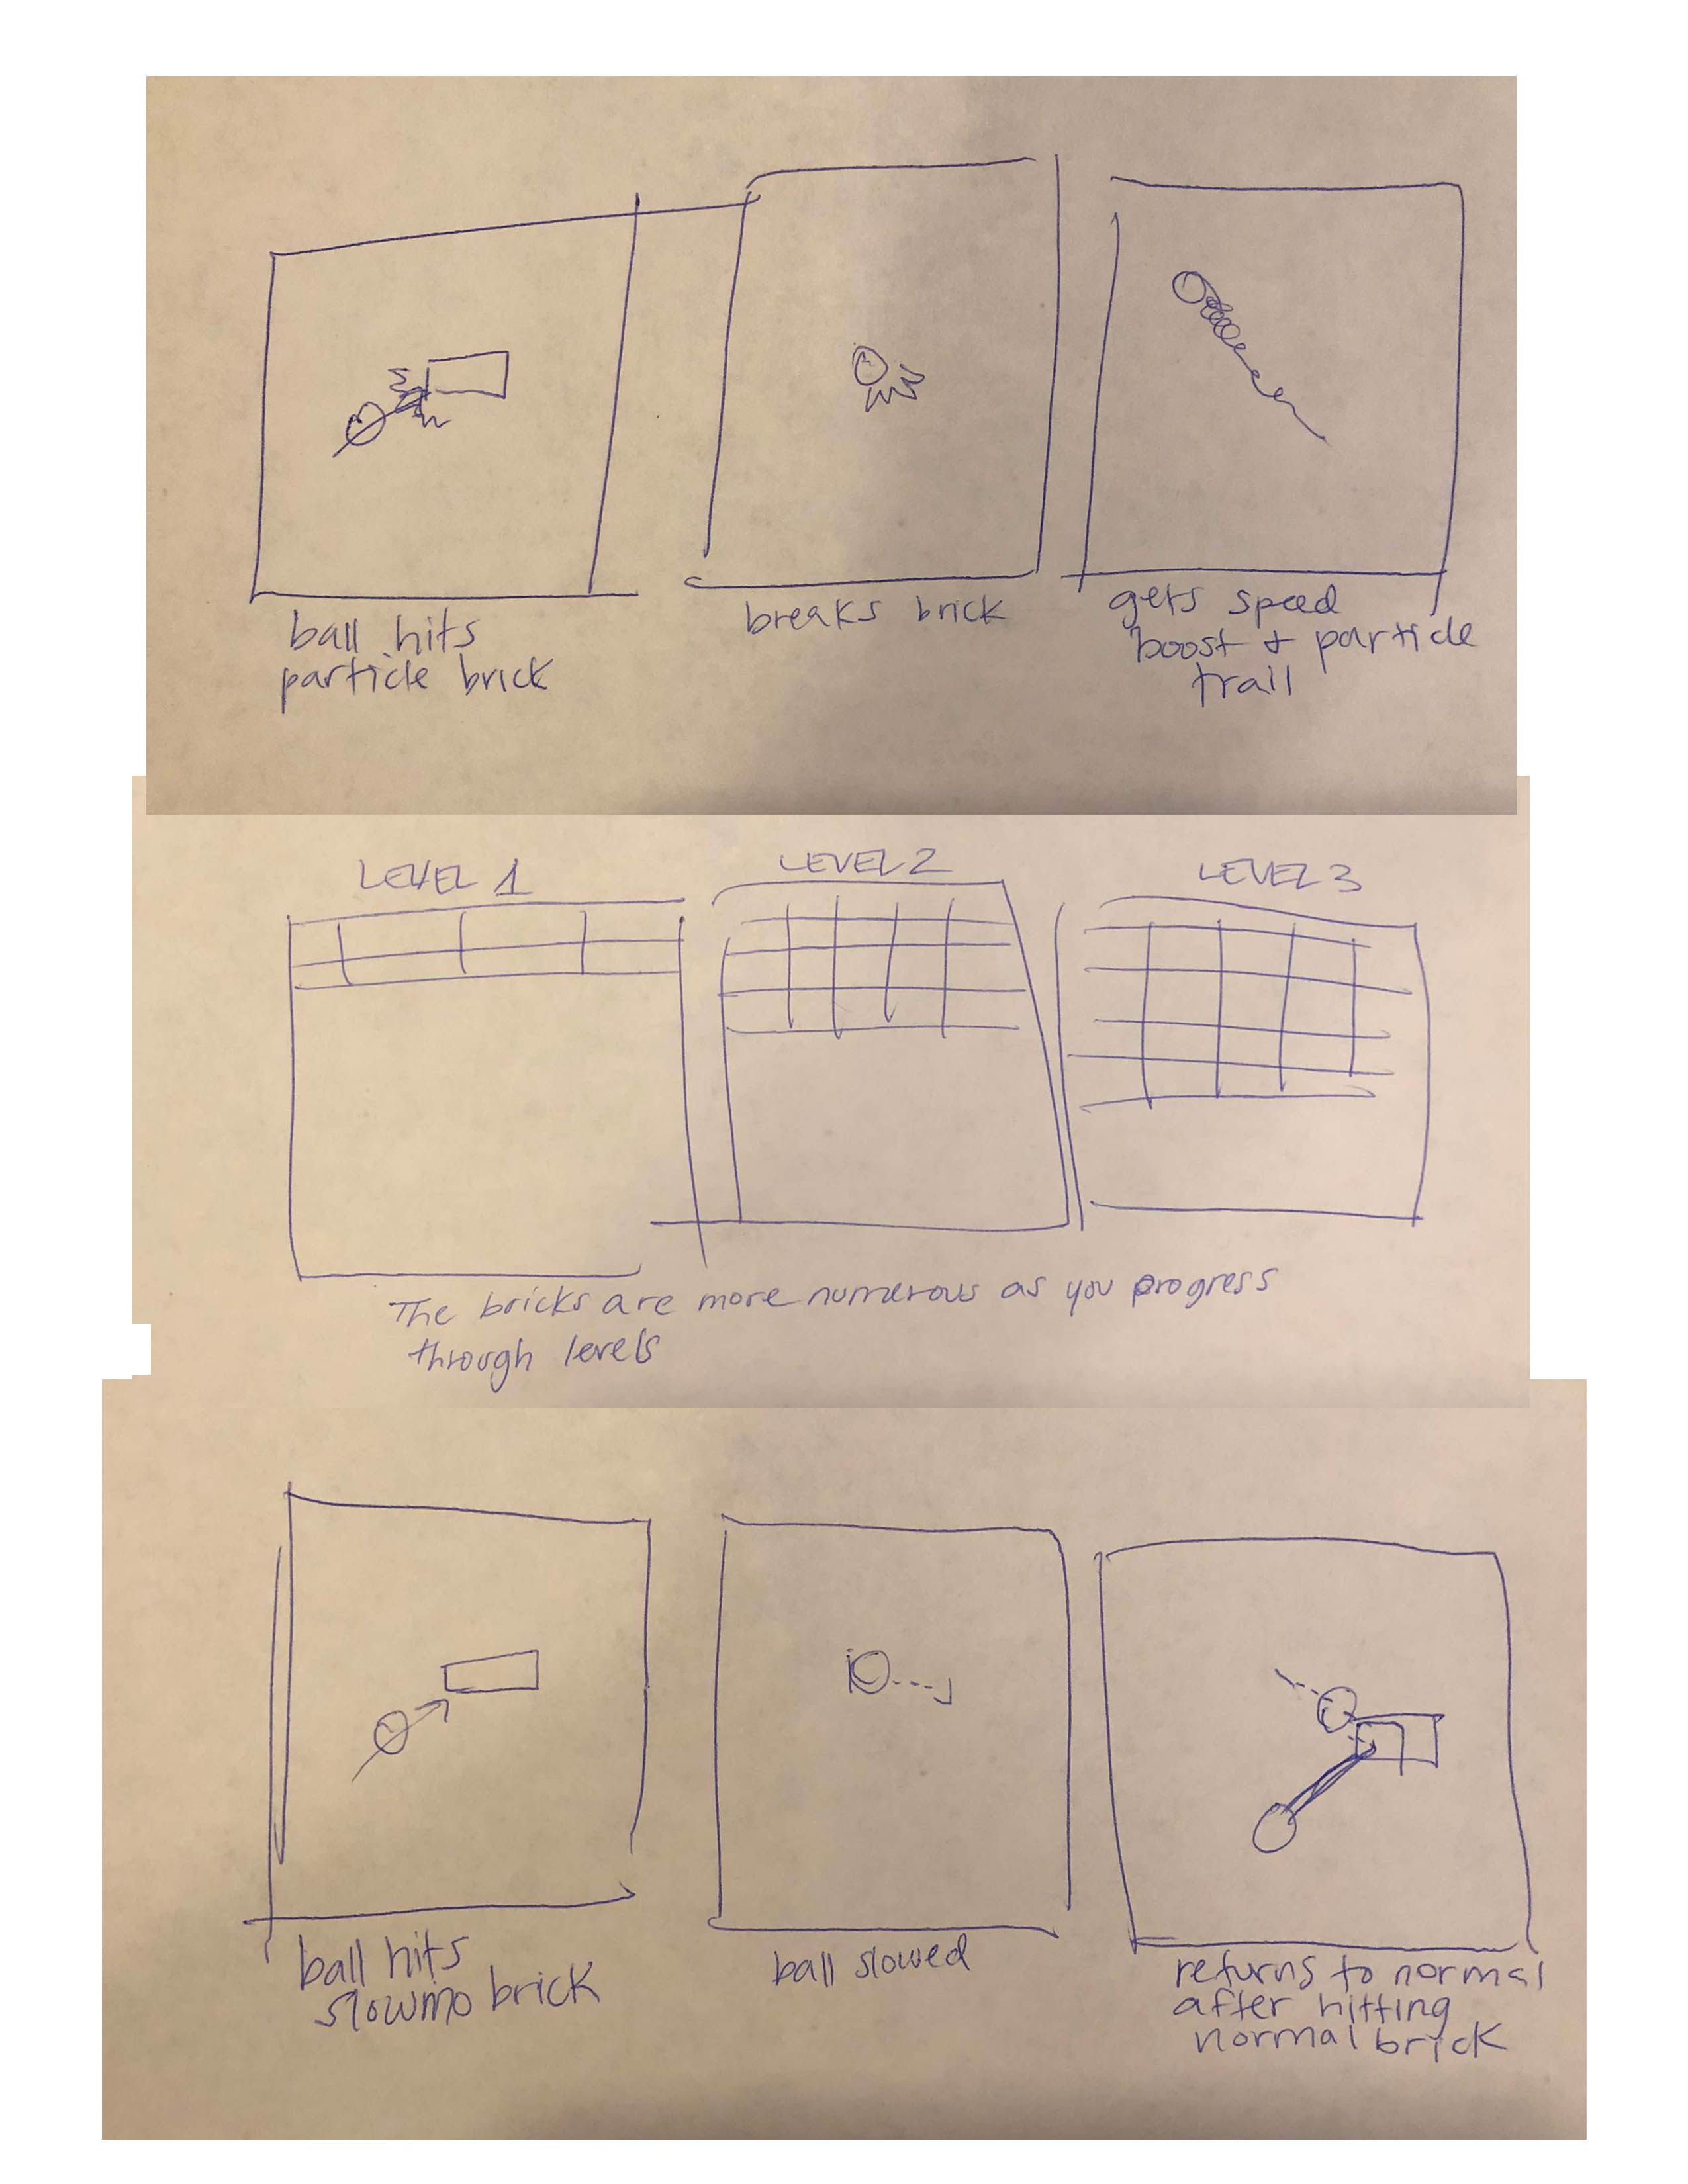 ball hits
particle brick
breaks brick
gets speed
boost + particle
trail
LEVEL 1
LEVEL 2
LEVEL 3
The bricks are more numerous as you progress
through levels
ball hits
slowmo brick
ball slowed
returns to normal
after hitting
normal brick